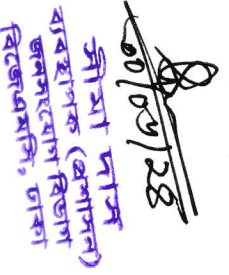 সীমা দাস
ব্যবস্থাপক (প্রশাসন)
জনসংযোগ বিভাগ
বিজেএমসি, ঢাকা